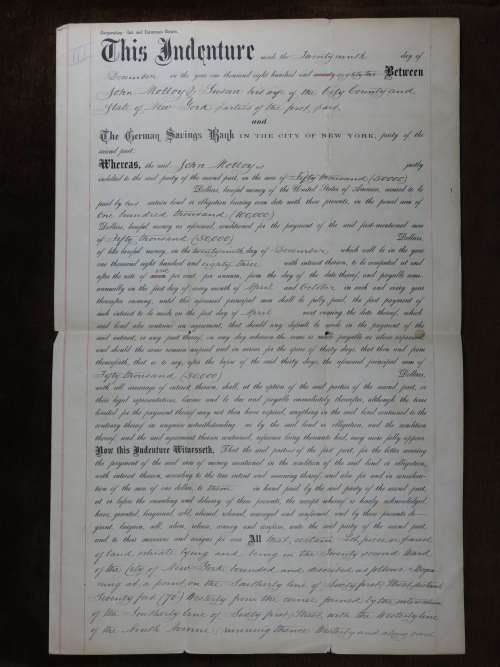 Corporation—Int. and Insurance Clause.
This Indenture made the Twenty ninth day of
December in the year one thousand eight hundred and eighty two Between
John Molloy & Susan his wife of the City County and
State of New York parties of the first part,
and
The German Savings Bank IN THE CITY OF NEW YORK, party of the
second part:
Whereas, the said John Molloy is justly
indebted to the said party of the second part, in the sum of Fifty thousand (50000)
Dollars, lawful money of the United States of America, secured to be
paid by his certain bond or obligation bearing even date with these presents, in the penal sum of
One hundred thousand (100,000)
Dollars, lawful money as aforesaid, conditioned for the payment of the said first-mentioned sum
of Fifty thousand (50,000) Dollars,
of like lawful money, on the twenty ninth day of December which will be in the year
one thousand eight hundred and eighty three with interest thereon, to be computed at and
after the rate of per cent. per annum, from the day of the date thereof, and payable semi-
annually on the first day of every month of April and October in each and every year
thereafter ensuing, until the aforesaid principal sum shall be fully paid, the first payment of
such interest to be made on the first day of April next ensuing the date thereof, which
said bond also contains an agreement, that should any default be made in the payment of the
said interest, or any part thereof, on any day whereon the same is made payable as above expressed
and should the same remain unpaid and in arrear for the space of thirty days, that then and from
thenceforth, that is to say, after the lapse of the said thirty days, the aforesaid principal sum of
Fifty thousand (50,000) Dollars,
with all arrearage of interest thereon, shall, at the option of the said parties of the second part, or
their legal representatives, become and be due and payable immediately thereafter, although the time
limited for the payment thereof may not then have expired, anything in the said bond contained to the
contrary thereof in anywise notwithstanding: as by the said bond or obligation, and the condition
thereof and the said agreement therein contained, reference being thereunto had, may more fully appear.
Now this Indenture Witnesseth, That the said parties of the first part, for the better securing
the payment of the said sum of money mentioned in the condition of the said bond or obligation,
with interest thereon, according to the true intent and meaning thereof, and also for and in considera-
tion of the sum of one dollar, to them in hand paid by the said party of the second part,
at or before the ensealing and delivery of these presents, the receipt whereof is hereby acknowledged,
have granted, bargained, sold, aliened, released, conveyed and confirmed, and by these presents do
grant, bargain, sell, alien, release, convey and confirm, unto the said party of the second part,
and to their successors and assigns for ever All that certain lot, piece or parcel
of land situate lying and being in the Twenty second Ward
of the City of New York bounded and described as follows: Begin
ning at a point on the Southerly line of Sixty first Street distant
Seventy feet (70) Westerly from the corner formed by the intersection
of the Southerly line of Sixty first Street, with the Westerly line
of the Ninth Avenue; running thence Westerly and along said